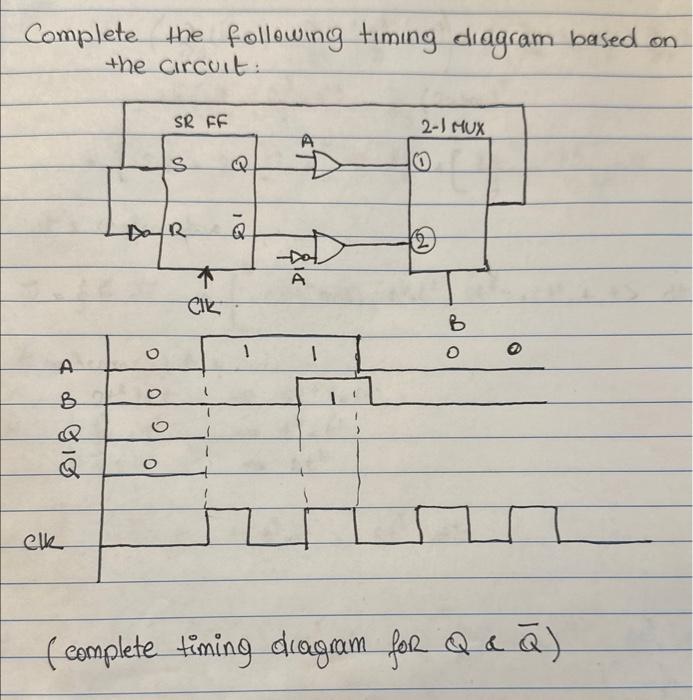 Complete the following timing diagram based on
the circuit:
SR FF
2-1 MUX
A
S Q
①
R Q̄
②
Ā
Clk
B
A 0 1 1 0 0
B 0 1
Q 0
Q̄ 0
Clk
(complete timing diagram for Q & Q̄)